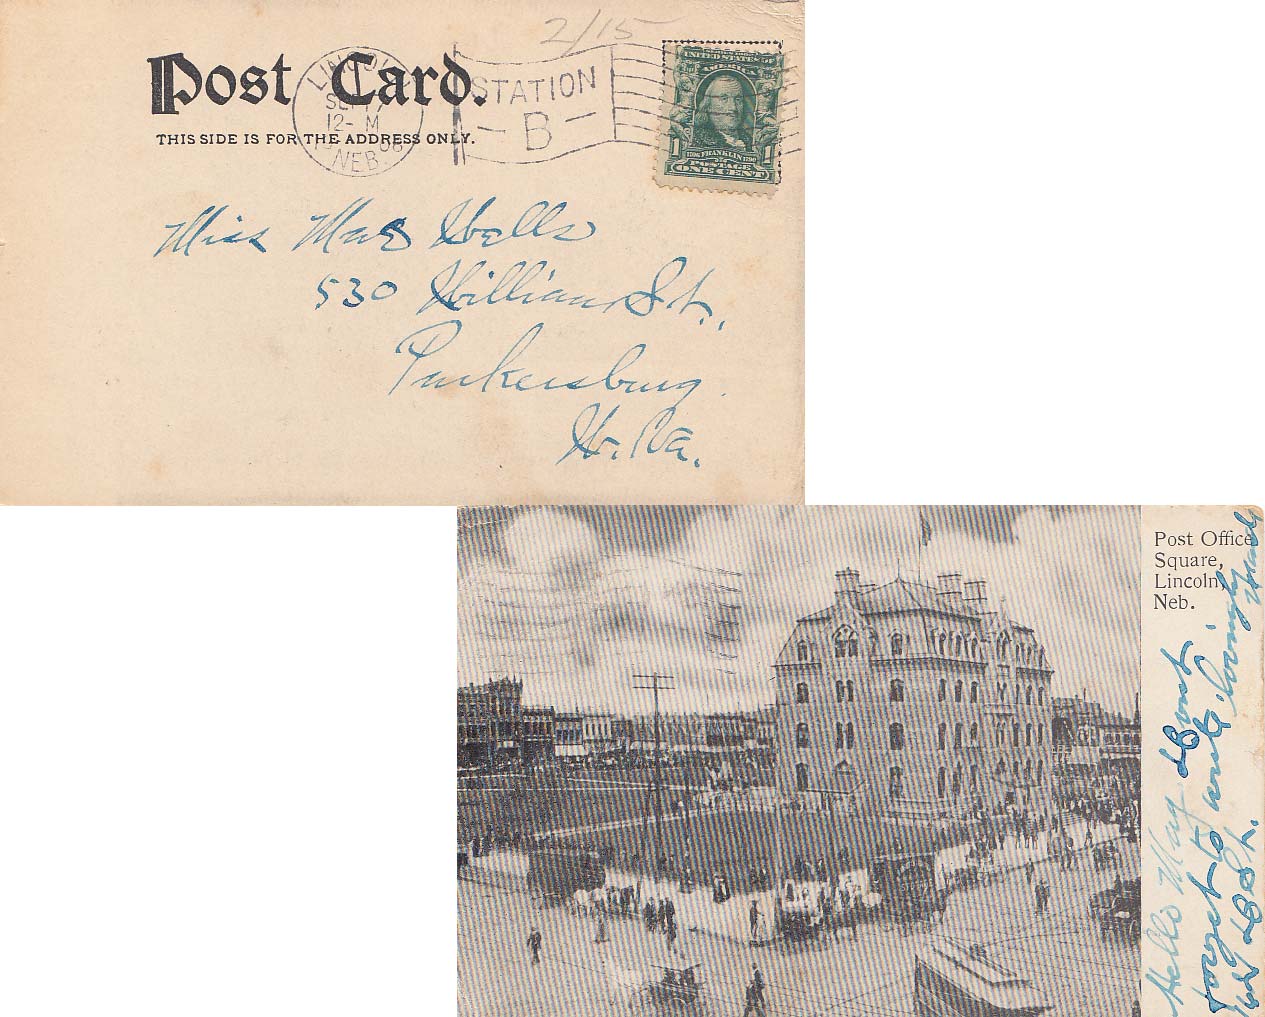 2/15
Post Card.
THIS SIDE IS FOR THE ADDRESS ONLY.
LINCOLN
SEP 17
12- M
08
NEB.
STATION
B
UNITED STATES OF
AMERICA
1706 FRANKLIN 1790
1 POSTAGE 1
ONE CENT
Miss Mae Wells
530 William St.,
Parkersburg
W. Va.
Post Office
Square,
Lincoln,
Neb.
Hello May Dont
forget to write lovingly
St.